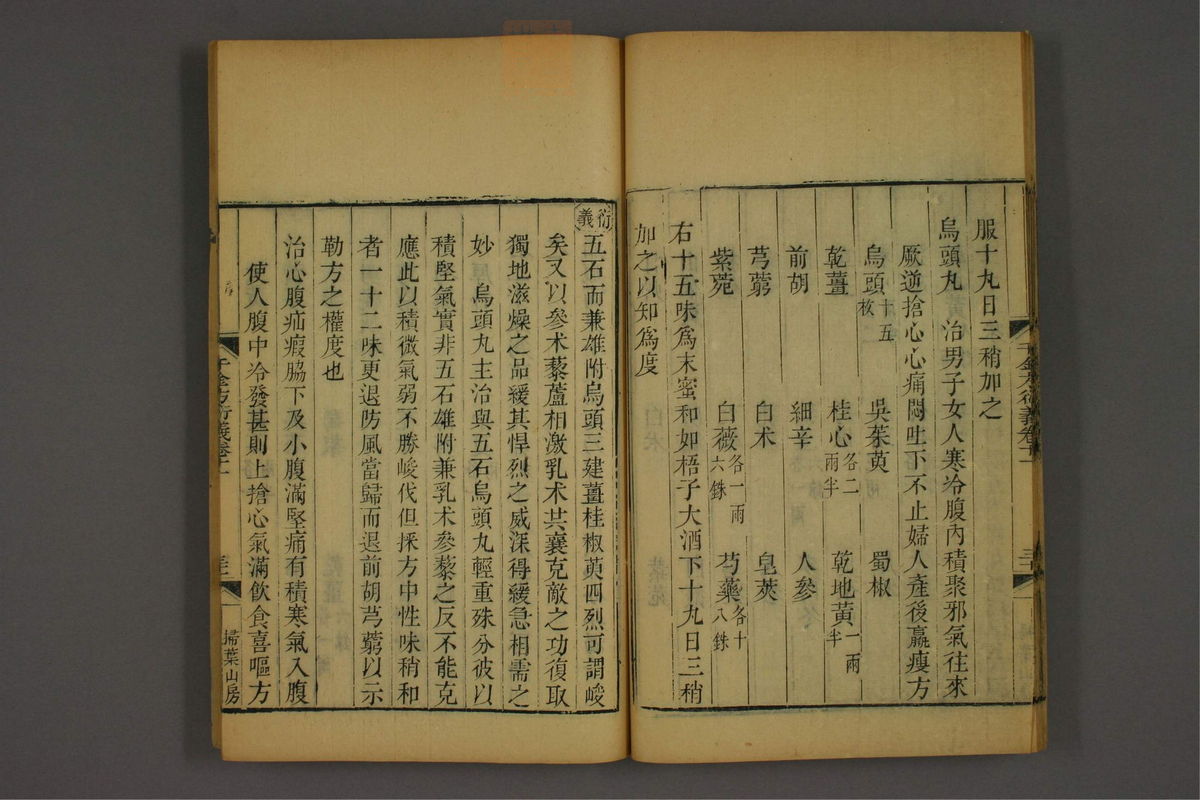 服十丸日三稍加之
烏頭丸　治男子女人寒冷腹內積聚邪氣往來
厥逆搶心心痛悶吐下不止婦人產後羸瘦方
烏頭十五枚　吳茱萸　蜀椒
乾薑　桂心各二兩半　乾地黃一兩半
前胡　細辛　人參
芎藭　白朮　皂莢
紫菀　白薇各一兩六銖　芍藥各十八銖
右十五味爲末蜜和如梧子大酒下十丸日三稍
加之以知爲度
千金方衍義卷十一　三十
衍義五石而兼雄附烏頭三建薑桂椒萸四烈可謂峻
矣又以參朮藜蘆相激乳朮共襄克敵之功復取
獨地滋燥之品緩其悍烈之威深得緩急相需之
妙　烏頭丸主治與五石烏頭丸輕重殊分彼以
積堅氣實非五石雄附兼乳朮參藜之反不能克
應此以積微氣弱不勝峻伐但採方中性味稍和
者一十二味更退防風當歸而退前胡芎藭以示
勒方之權度也
治心腹疝瘕脇下及小腹滿堅痛有積寒氣入腹
使人腹中冷發甚則上搶心氣滿飲食喜嘔方
千金方衍義卷十一　掃葉山房